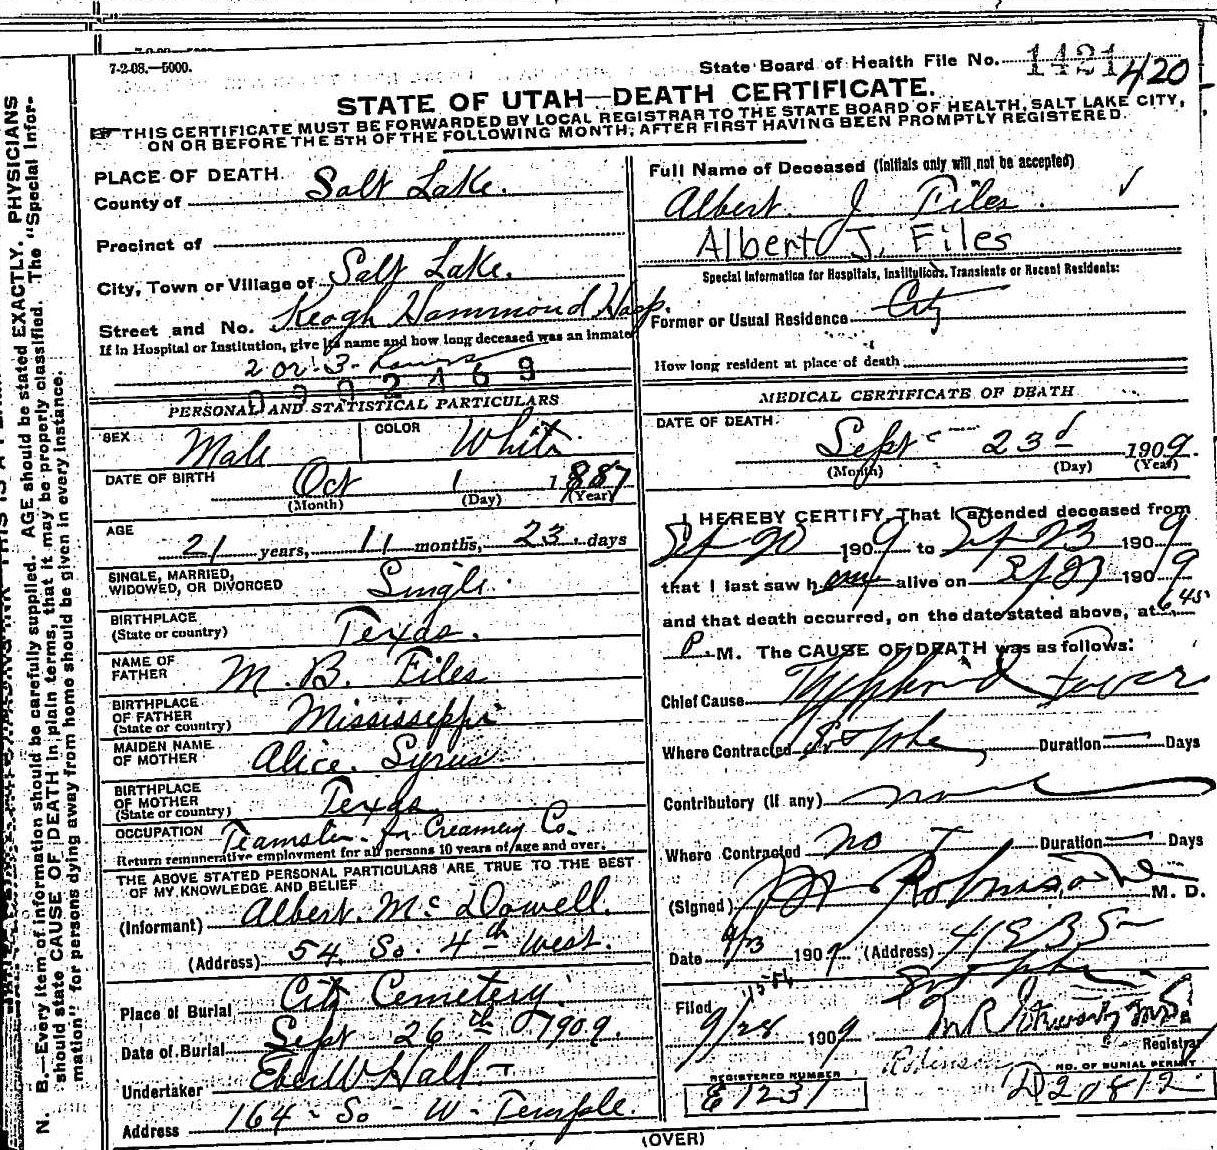 7-2-08.—5000.
State Board of Health File No. 1421 420
STATE OF UTAH—DEATH CERTIFICATE.
THIS CERTIFICATE MUST BE FORWARDED BY LOCAL REGISTRAR TO THE STATE BOARD OF HEALTH, SALT LAKE CITY,
ON OR BEFORE THE 5TH OF THE FOLLOWING MONTH, AFTER FIRST HAVING BEEN PROMPTLY REGISTERED.
PLACE OF DEATH
County of Salt Lake.
Precinct of
City, Town or Village of Salt Lake.
Street and No. Keogh Hammond Hosp.
If in Hospital or Institution, give its name and how long deceased was an inmate
2 or 3 hours
PERSONAL AND STATISTICAL PARTICULARS
SEX Male COLOR White
DATE OF BIRTH Oct 1 1887
(Month) (Day) (Year)
AGE 21 years, 11 months, 23 days
SINGLE, MARRIED,
WIDOWED, OR DIVORCED Single.
BIRTHPLACE
(State or country) Texas.
NAME OF
FATHER M. B. Files
BIRTHPLACE
OF FATHER
(State or country) Mississippi
MAIDEN NAME
OF MOTHER Alice Syrus
BIRTHPLACE
OF MOTHER
(State or Country) Texas
OCCUPATION Teamster for Creamery Co.
Return remunerative employment for all persons 10 years of age and over.
THE ABOVE STATED PERSONAL PARTICULARS ARE TRUE TO THE BEST
OF MY KNOWLEDGE AND BELIEF
(Informant) Albert McDowell.
(Address) 54 So. 4th West.
Place of Burial City Cemetery.
Date of Burial Sept 26th 1909.
Undertaker Eber W Hall
Address 164 - So - W - Temple.
Full Name of Deceased (Initials only will not be accepted)
Albert J Files
Albert J. Files
Special Information for Hospitals, Institutions, Transients or Recent Residents:
Former or Usual Residence City
How long resident at place of death
MEDICAL CERTIFICATE OF DEATH
DATE OF DEATH
Sept 23d 1909.
(Month) (Day) (Year)
I HEREBY CERTIFY, That I attended deceased from
Sept 20 1909 to Sept 23 1909
that I last saw him alive on 9/23 1909
and that death occurred, on the date stated above, at 6.45
P. M. The CAUSE OF DEATH was as follows:
Chief Cause Typhoid Fever
Where Contracted Duration Days
Contributory (if any) none
Where Contracted no Duration Days
(Signed) Robinson M. D.
Date 9/23 1909 (Address)
Filed 9/28 1909
Registrar
REGISTERED NUMBER
E 1231
Robinson
NO. OF BURIAL PERMIT
D20812
(OVER)
N. B.—Every item of information should be carefully supplied. AGE should be stated EXACTLY. PHYSICIANS
should state CAUSE OF DEATH in plain terms, that it may be properly classified. The "Special Infor-
mation" for persons dying away from home should be given in every instance.